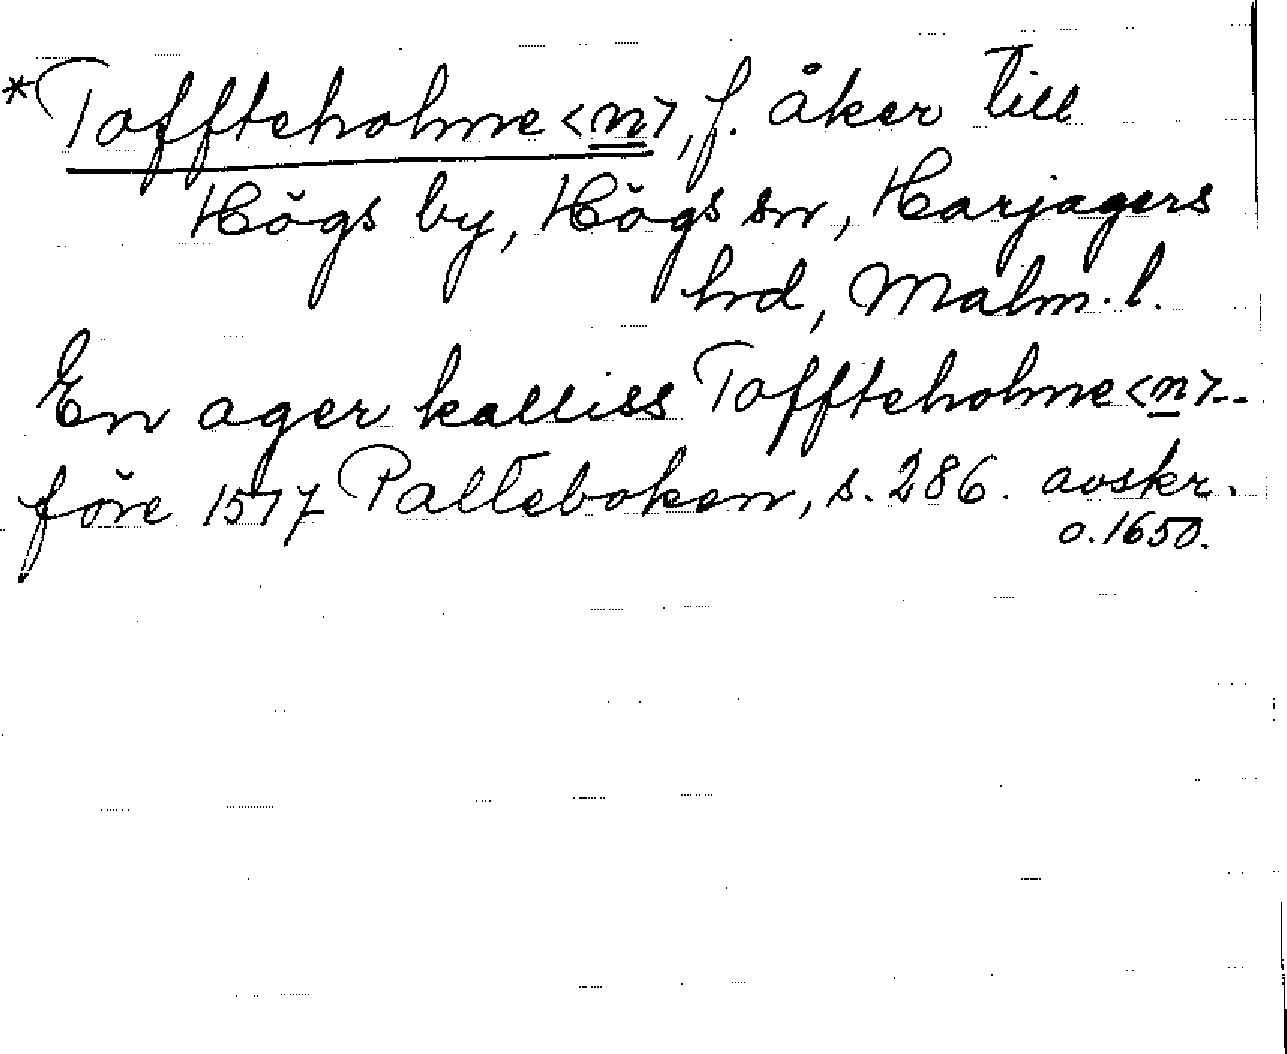 *Toffteholme<n>, f. åker till
Högs by, Högs sn, Harjagers
hrd, Malm.l.
En ager kalliss Toffteholme<n>--
före 1517 Palteboken, s. 286. avskr.
o. 1650.